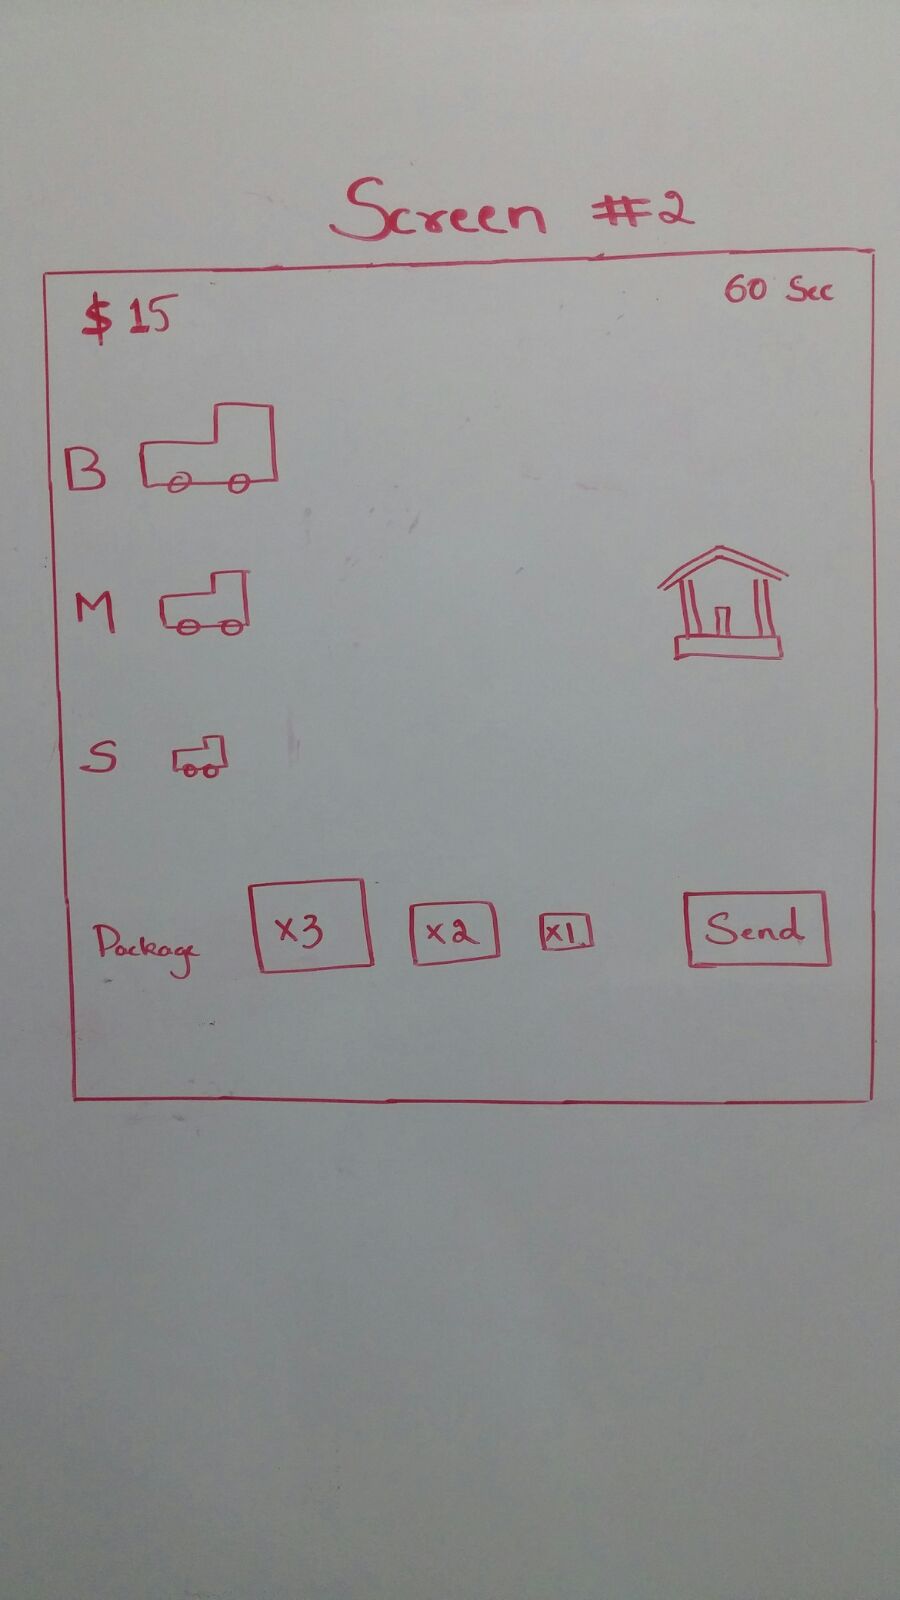 Screen #2
$ 15
60 Sec
B
M
S
Package
x3
x2
x1
Send